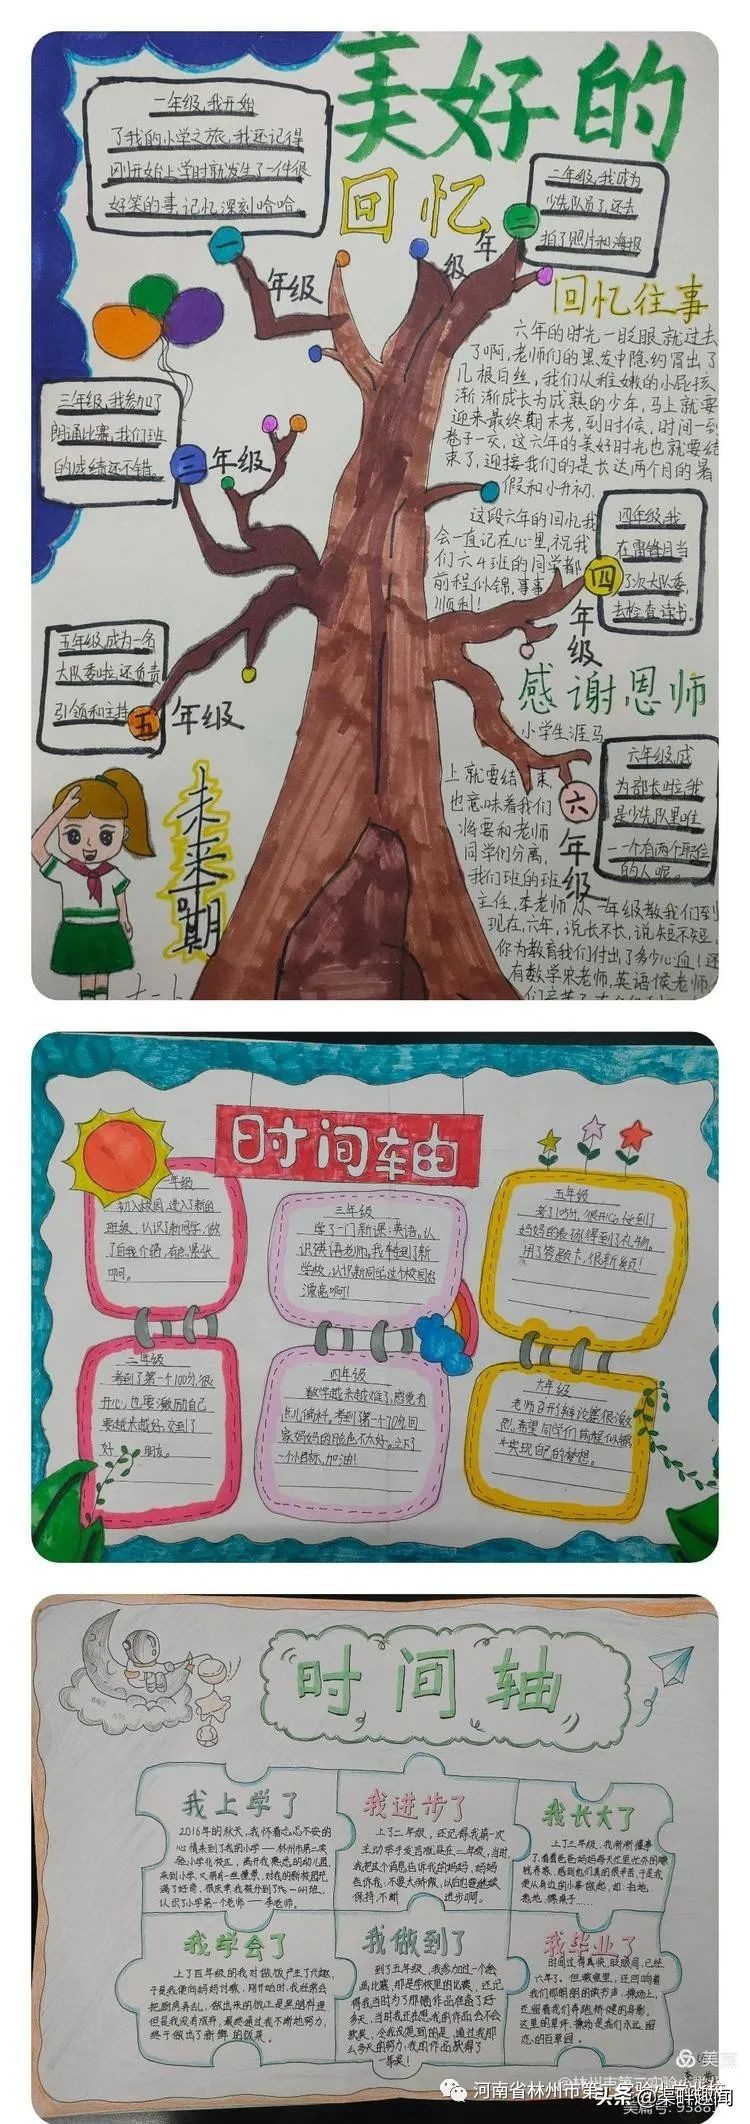 美好的
回忆
一年级,我开始
了我的小学之旅,我还记得
刚开始上学时就发生了一件很
好笑的事,记忆深刻哈哈。
一年级
二年级,我成为
少先队员了,还去
拍了照片和海报
二年级
回忆往事
六年的时光一眨眼就过去
了啊,老师们的黑发中隐约冒出了
几根白丝,我们从稚嫩的小屁孩
渐渐成长为成熟的少年,马上就要
迎来最终期末考,到时候,时间一到
卷子一交,这六年的美好时光也就要结
束了,迎接我们的是长达两个月的暑
假和小升初.
这段六年的回忆我
会一直记在心里,祝我
们六4班的同学都
前程似锦,事事
顺利!
三年级,我参加了
朗诵比赛,我们班
的成绩还不错.
三年级
四年级,我
在雷锋月当
了次大队委,
去检查读书。
四年级
五年级,成为一名
大队委啦,还负责
引领和主持
五年级
感谢恩师
小学生涯马
上就要结束,
也意味着我们
将要和老师
同学们分离,
我们班的班
主任,李老师从一年级教我们到
现在,六年,说长不长,说短不短,
你为教育我们付出了多少心血!还
有数学宋老师,英语侯老师,
六年级,成
为部长啦,我
是少先队里唯
一一个有两个职位
的人呢。
六年级
未来可期
时间轴
年级
初入校园,进入了新的
班级,认识了新同学,做
了自我介绍,有点紧张
啊。
二年级
考到了第一个100分,很
开心,也要激励自己
要越来越好,交到了
好朋友。
三年级
学了一门新课:英语,认
识英语老师,我转到了新
学校,认识新同学,这个校园好
漂亮啊!
四年级
数学越来越难了,感觉有
点儿偏科。考到第一个70分,回
家妈妈的脸色不太好。立下了
一个小目标,加油!
五年级
考了105分,很开心,得到了
妈妈的表扬,得到了礼物。
用了答题卡,很新奇!
六年级
老师召开辩论赛很激
烈。希望同学们前程似锦
实现自己的梦想。
时间轴
我上学了
2016年的秋天,我怀着忐忑不安的
心情来到了我的小学——林州市第二实
验小学北校区,离开我熟悉的幼儿园,
来到小学,又期有一些憧憬,对我的新校园充
满了好奇,很庆幸我被分到了六一4班,
认识了小学第一个老师——李老师。
我进步了
上了二年级,还记得我第一次
主动举手发言就是在二年级,当时,
我把这个消息告诉我的妈妈,妈妈
告诉我,不要太骄傲,以后也要继续
保持,不断进步啊。
我长大了
上了三年级,我渐渐懂事
了,看着爸爸妈妈每天忙里忙外的赚
钱养家,感到他们真的很辛苦,于是我
便从身边的小事做起,如:扫地,
拖地,擦桌子……
我学会了
上了四年级的我对做饭产生了兴趣,
于是我便向妈妈讨教,刚开始时,我经常会
把厨房弄乱,做出来的饭还是黑暗料理
但是我没有放弃,最终通过我不断地努力,
终于做出了新鲜的饭菜。
我做到了
到了五年级,我参加过一个绘
画比赛,那是学校里的比赛,还记
得我当时为了那幅作品准备了好
多天,当时我还在想,我的作品会不会
获奖,令我没想到的是,通过我那
么多天的努力,我的作品获得了
等奖!
我毕业了
时间过得真快,眨眼间,已经
六年了。但教室里,还回响着
我们那朗朗的读书声,操场上,
还留着我们奔跑矫健的身影,
这里的草坪、操场是我们永远留
恋的百草园。
美篇
@林州市第二实验小学
河南省林州市第二实验小学
头条@渠畔趣闻
美篇号:9388